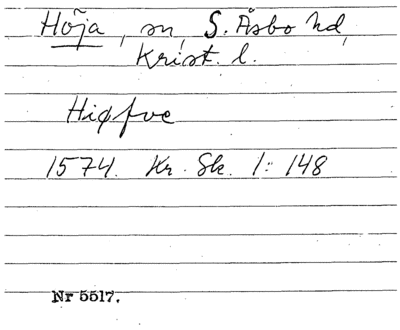 Höja, sn, S. Åsbo hd,
Krist. l.
Hiøfve
1574. Kr. Sk. 1: 148
Nr 5517.